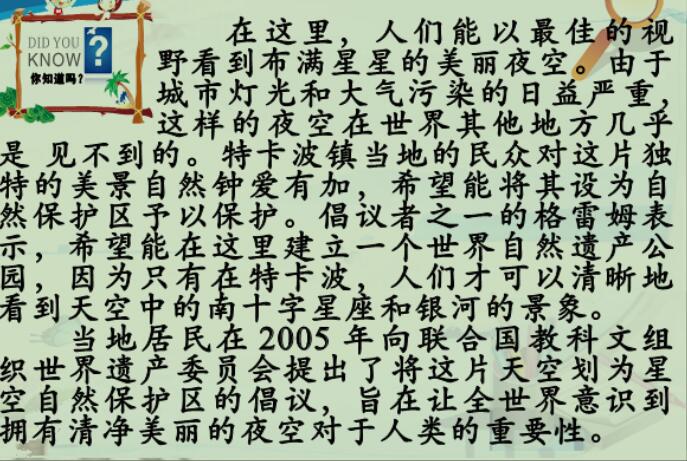 DID YOU
KNOW
?
你知道吗？
在这里，人们能以最佳的视
野看到布满星星的美丽夜空。由于
城市灯光和大气污染的日益严重，
这样的夜空在世界其他地方几乎
是 见不到的。特卡波镇当地的民众对这片独
特的美景自然钟爱有加，希望能将其设为自
然保护区予以保护。倡议者之一的格雷姆表
示，希望能在这里建立一个世界自然遗产公
园，因为只有在特卡波，人们才可以清晰地
看到天空中的南十字星座和银河的景象。
当地居民在 2005 年向联合国教科文组
织世界遗产委员会提出了将这片天空划为星
空自然保护区的倡议，旨在让全世界意识到
拥有清净美丽的夜空对于人类的重要性。